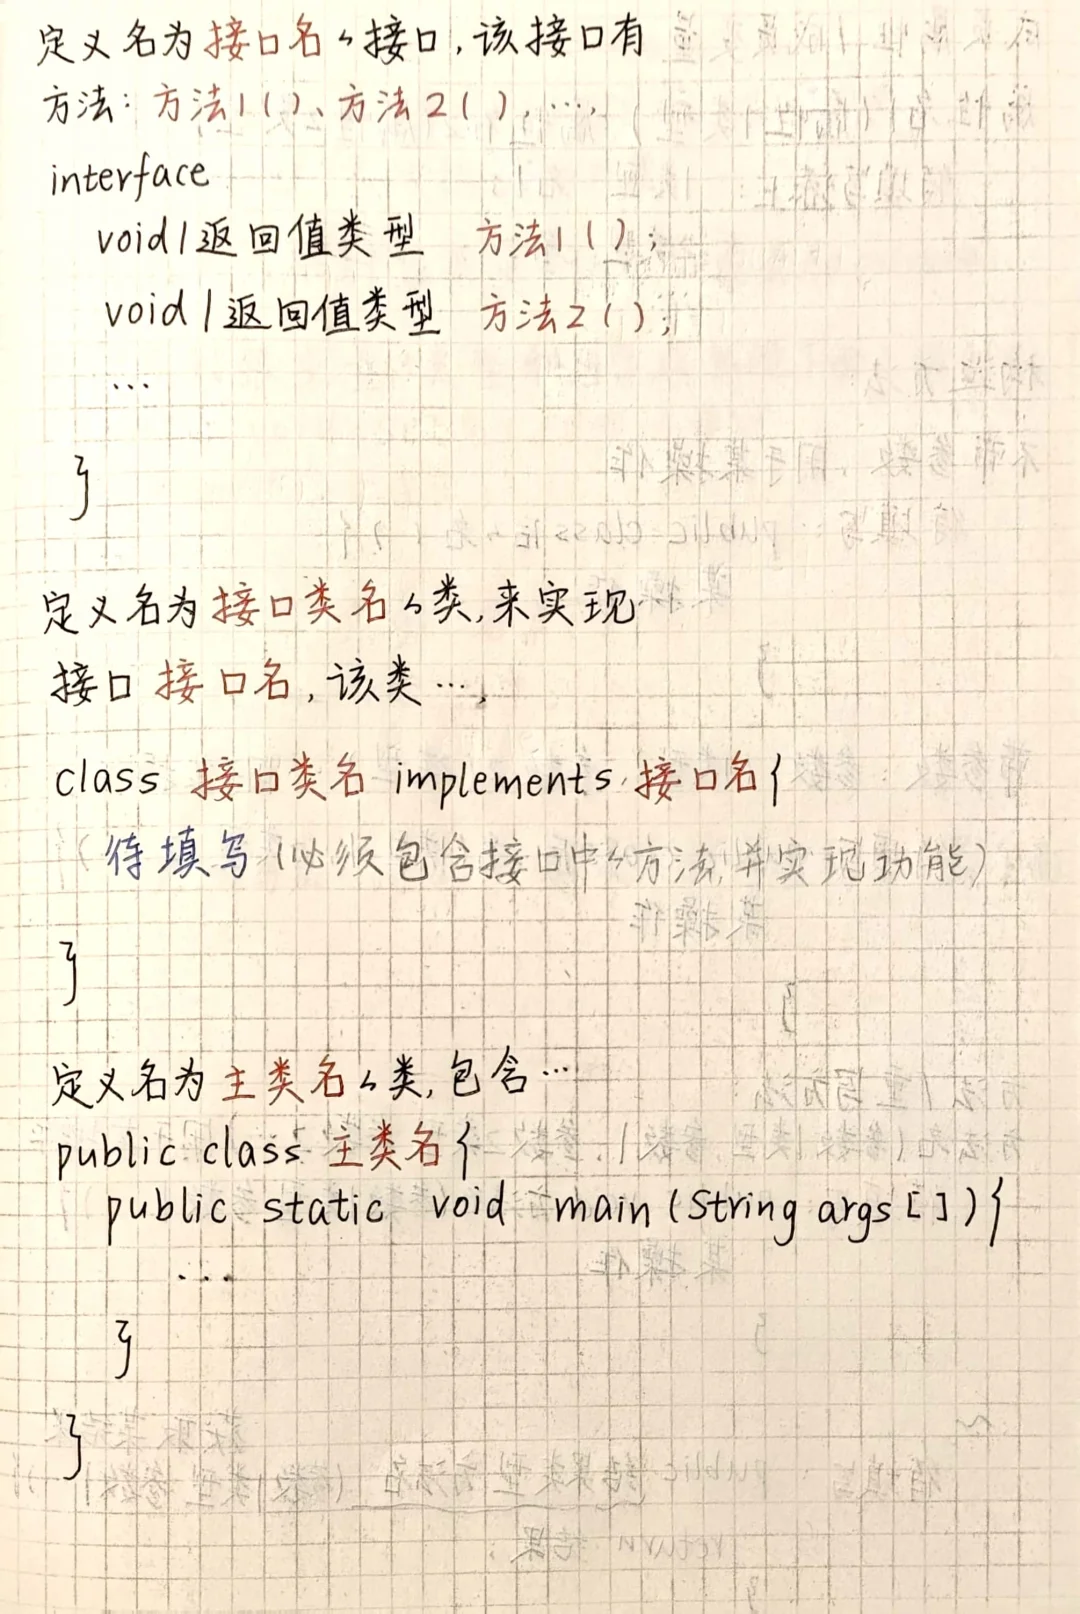 定义名为接口名的接口,该接口有
方法:方法1()、方法2(),…,
interface
void/返回值类型 方法1();
void/返回值类型 方法2();
…
}
定义名为接口类名的类,来实现
接口 接口名,该类…,
class 接口类名 implements 接口名{
待填写(必须包含接口中的方法,并实现功能)
}
定义名为主类名的类,包含…
public class 主类名{
public static void main(String args[]){
...
}
}